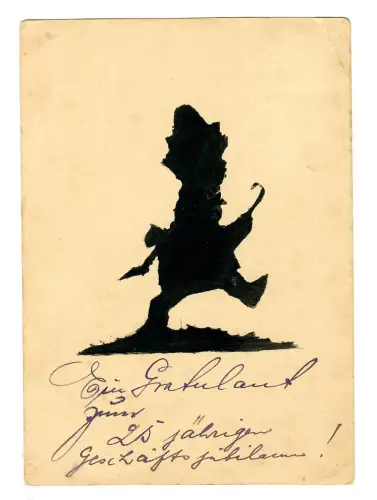 Ein Gratulant
zum
25 jährigen
Geschäftsjubiläum!